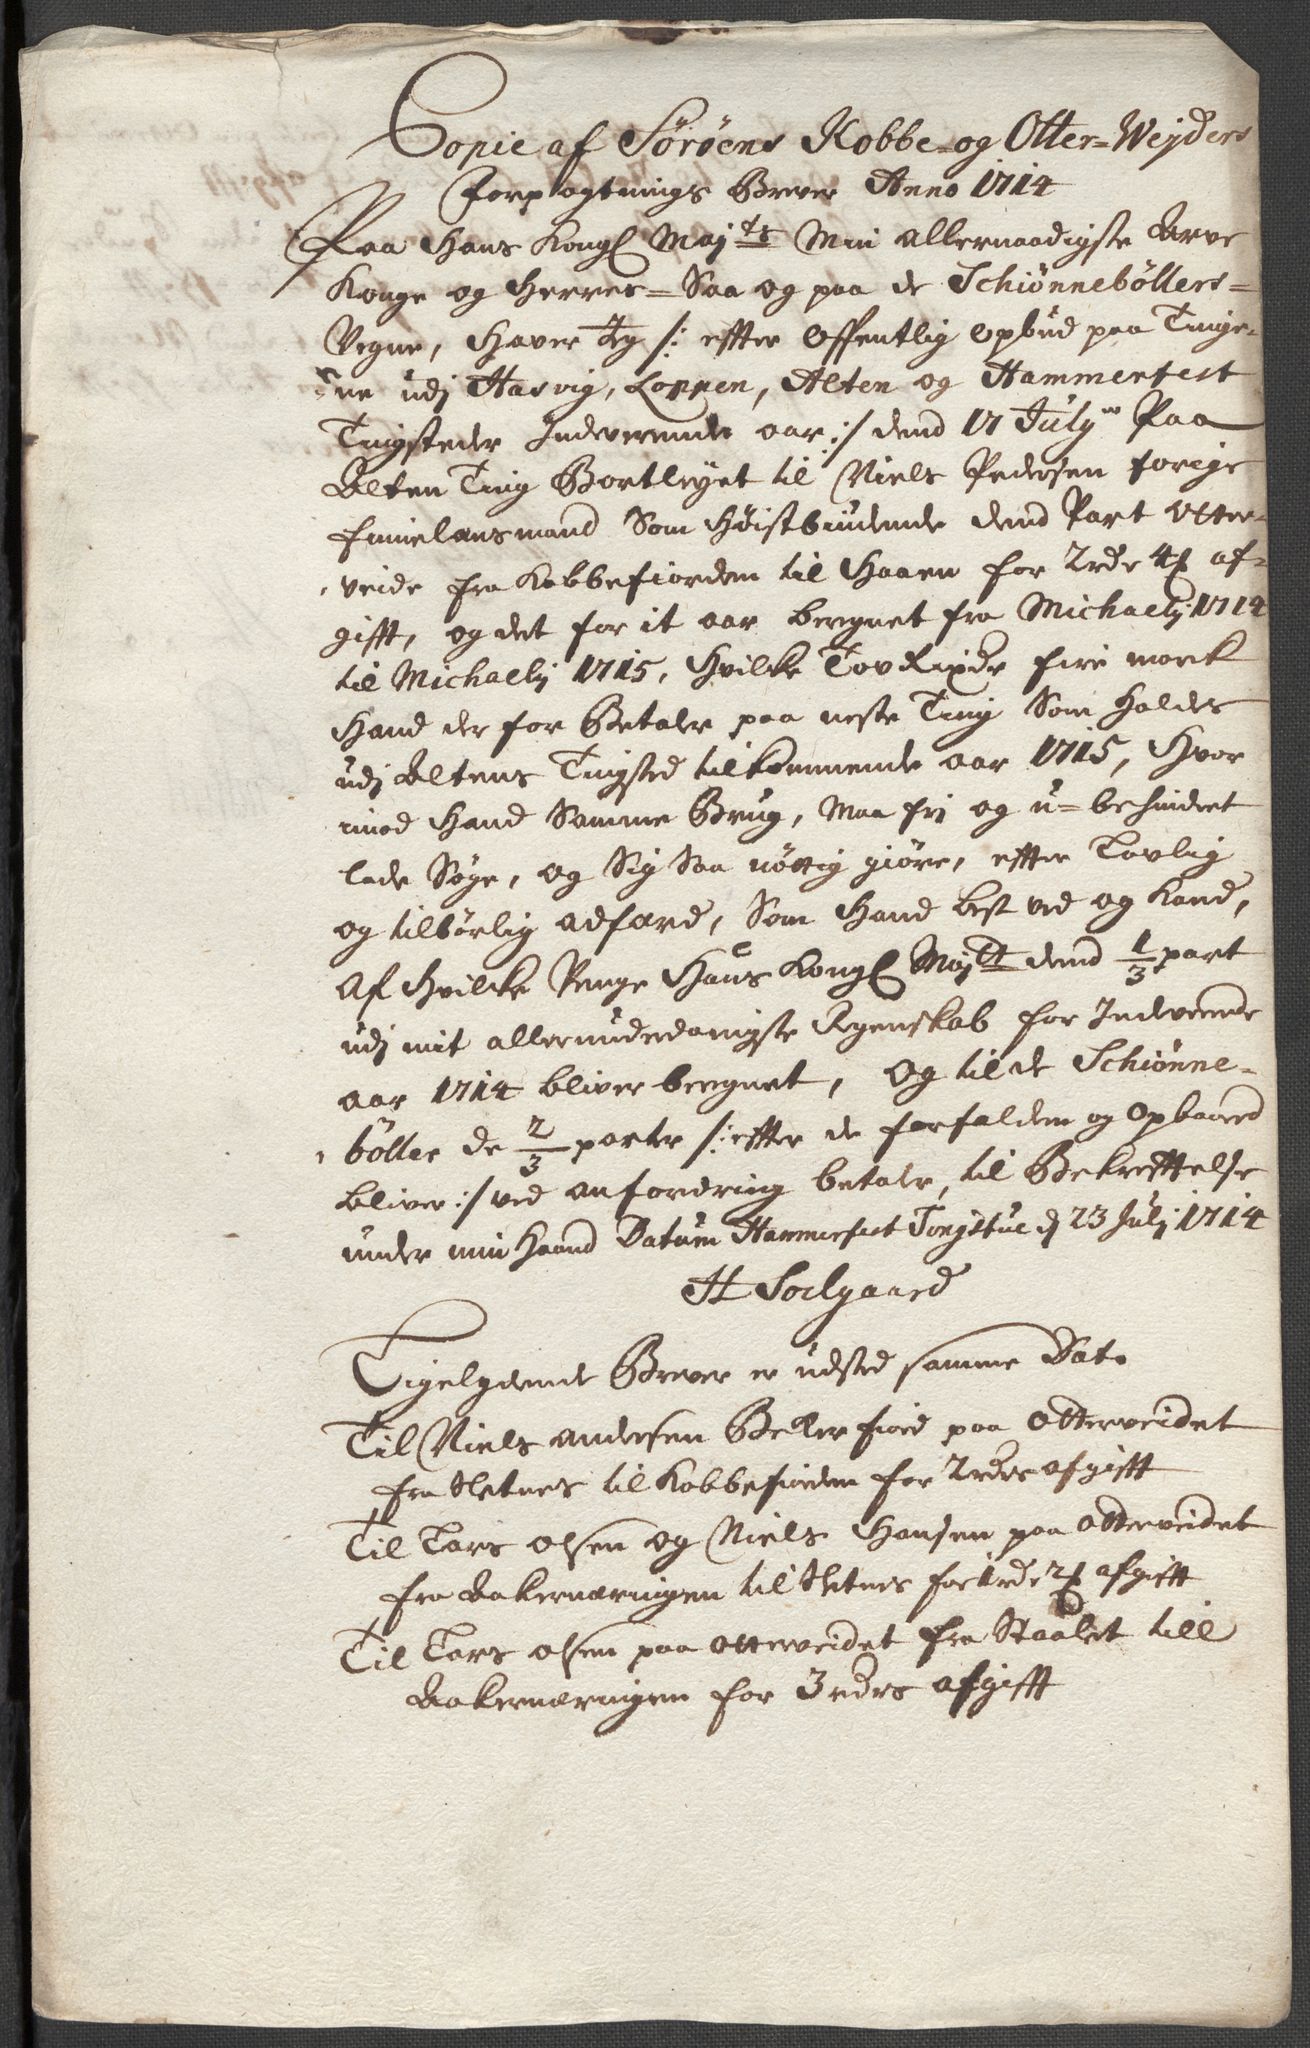 Copie af Sørøens Kobbe- og Otter-Weyders
Forpagtnings Brever Anno 1714
Paa Hans Kongl Maj:ts Min allernaadigste Arve
Konge og Herres- Saa og paa de Schiønnebøllers-
Vegne, Haver Jeg /: effter offentlig opbud paa Tinge-
ne udj Hasvig, Loppen, Alten og Hammerfest
Tingsteder Indeverende aar :/ dend 17 July Paa
Alten Ting Bortleyet til Niels Pedersen forige
finnelansmand Som Høistbiudende dend Part Otter-
veide fra Kobbefiorden til Haaen for 2 rdr 4 mk af-
gifft, og det for it aar beregnet fra Michaely 1714
til Michaely 1715, Hvilcke Tov Rixdr fire march
Hand der for Betaler paa neste Ting Som Holdes
udj Altens Tingsted tilkommende aar 1715, Hvor
imod Hand Samme Brug, Maa frj og u-behindret
lade Søge, og Sig Saa nøttig giøre, effter Lovlig
og tilbørlig adfærd, Som Hand best ved og Kand,
Af Hvilcke Penge Hans Kongl Majtt dend 1/3 part
udj mit allerunderdanigste Regenskab for Indeverende
aar 1714 bliver beregnet, Og til de Schiønne-
bøller de 2/3 parter /: effter de forfalden og Opbaared
bliver :/ ved anfordring betalr, til Bekrefftelse
under min Haand Datum Hammerfest Tingstue d 23 Julj 1714
H Soelgaard
Ligelydende Brever er udsted samme Dato
Til Niels andersen Bekker fiord paa Otterveidet
fra Sletnes til Kobbefiorden for 2 rdrs afgifft
Til Lars olsen og Niels Hansen paa otterveidet
fra Bakernæringen til Sletnes for 1 rdr 2 mk afgifft
Til Lars olsen paa otterveidet fra Staalet till
Bakernæringen for 3 rdrs afgifft